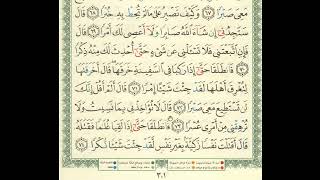 مَعِيَ صَبْرًا ﴿٦٧﴾ وَكَيْفَ تَصْبِرُ عَلَىٰ مَا لَمْ تُحِطْ بِهِۦ خُبْرًا ﴿٦٨﴾ قَالَ
سَتَجِدُنِيٓ إِن شَآءَ ٱللَّهُ صَابِرًا وَلَآ أَعْصِي لَكَ أَمْرًا ﴿٦٩﴾ قَالَ
فَإِنِ ٱتَّبَعْتَنِي فَلَا تَسْـَٔلْنِي عَن شَيْءٍ حَتَّىٰٓ أُحْدِثَ لَكَ مِنْهُ ذِكْرًا
﴿٧٠﴾ فَٱنطَلَقَا حَتَّىٰٓ إِذَا رَكِبَا فِي ٱلسَّفِينَةِ خَرَقَهَا قَالَ أَخَرَقْتَهَا
لِتُغْرِقَ أَهْلَهَا لَقَدْ جِئْتَ شَيْـًٔا إِمْرًا ﴿٧١﴾ قَالَ أَلَمْ أَقُلْ إِنَّكَ
لَن تَسْتَطِيعَ مَعِيَ صَبْرًا ﴿٧٢﴾ قَالَ لَا تُؤَاخِذْنِي بِمَا نَسِيتُ وَلَا
تُرْهِقْنِي مِنْ أَمْرِي عُسْرًا ﴿٧٣﴾ فَٱنطَلَقَا حَتَّىٰٓ إِذَا لَقِيَا غُلَٰمًا فَقَتَلَهُۥ
قَالَ أَقَتَلْتَ نَفْسًا زَكِيَّةًۢ بِغَيْرِ نَفْسٍ لَّقَدْ جِئْتَ شَيْـًٔا نُّكْرًا ﴿٧٤﴾
٣٠١